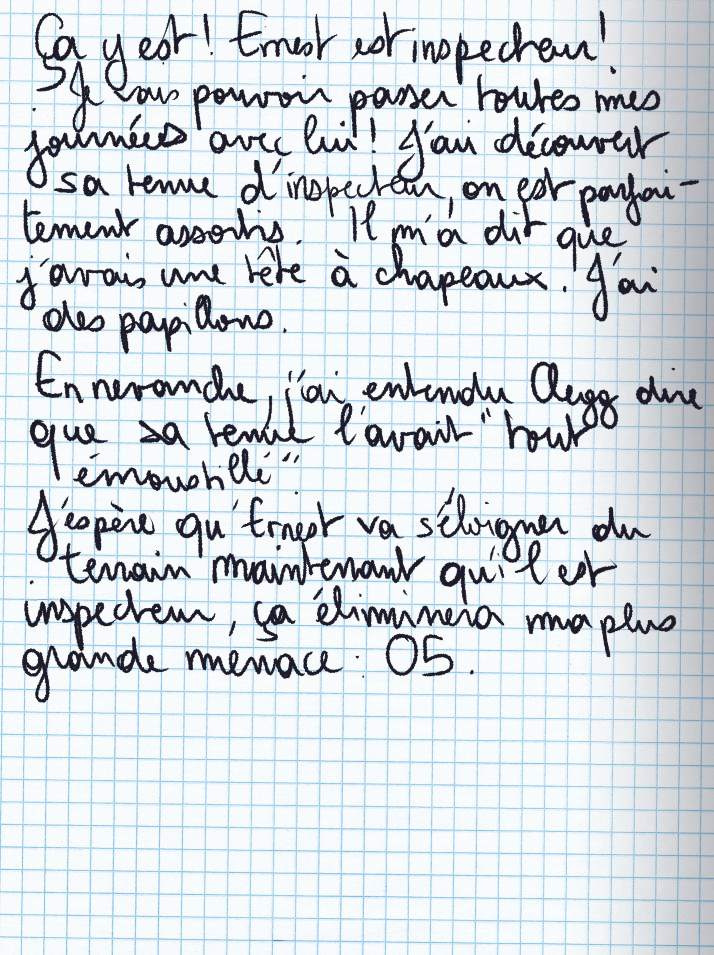 Ça y est ! Ernest est inspecteur !
Je vais pouvoir passer toutes mes
journées avec lui ! J'ai découvert
sa tenue d'inspecteur, on est parfai-
tement assortis. Il m'a dit que
j'avais une tête à chapeaux. J'ai
des papillons.
En revanche, j'ai entendu Clegg dire
que sa tenue l'avait "tout
émoustillé"
J'espère qu'Ernest va s'éloigner du
terrain maintenant qu'il est
inspecteur, ça éliminera ma plus
grande menace : 05.